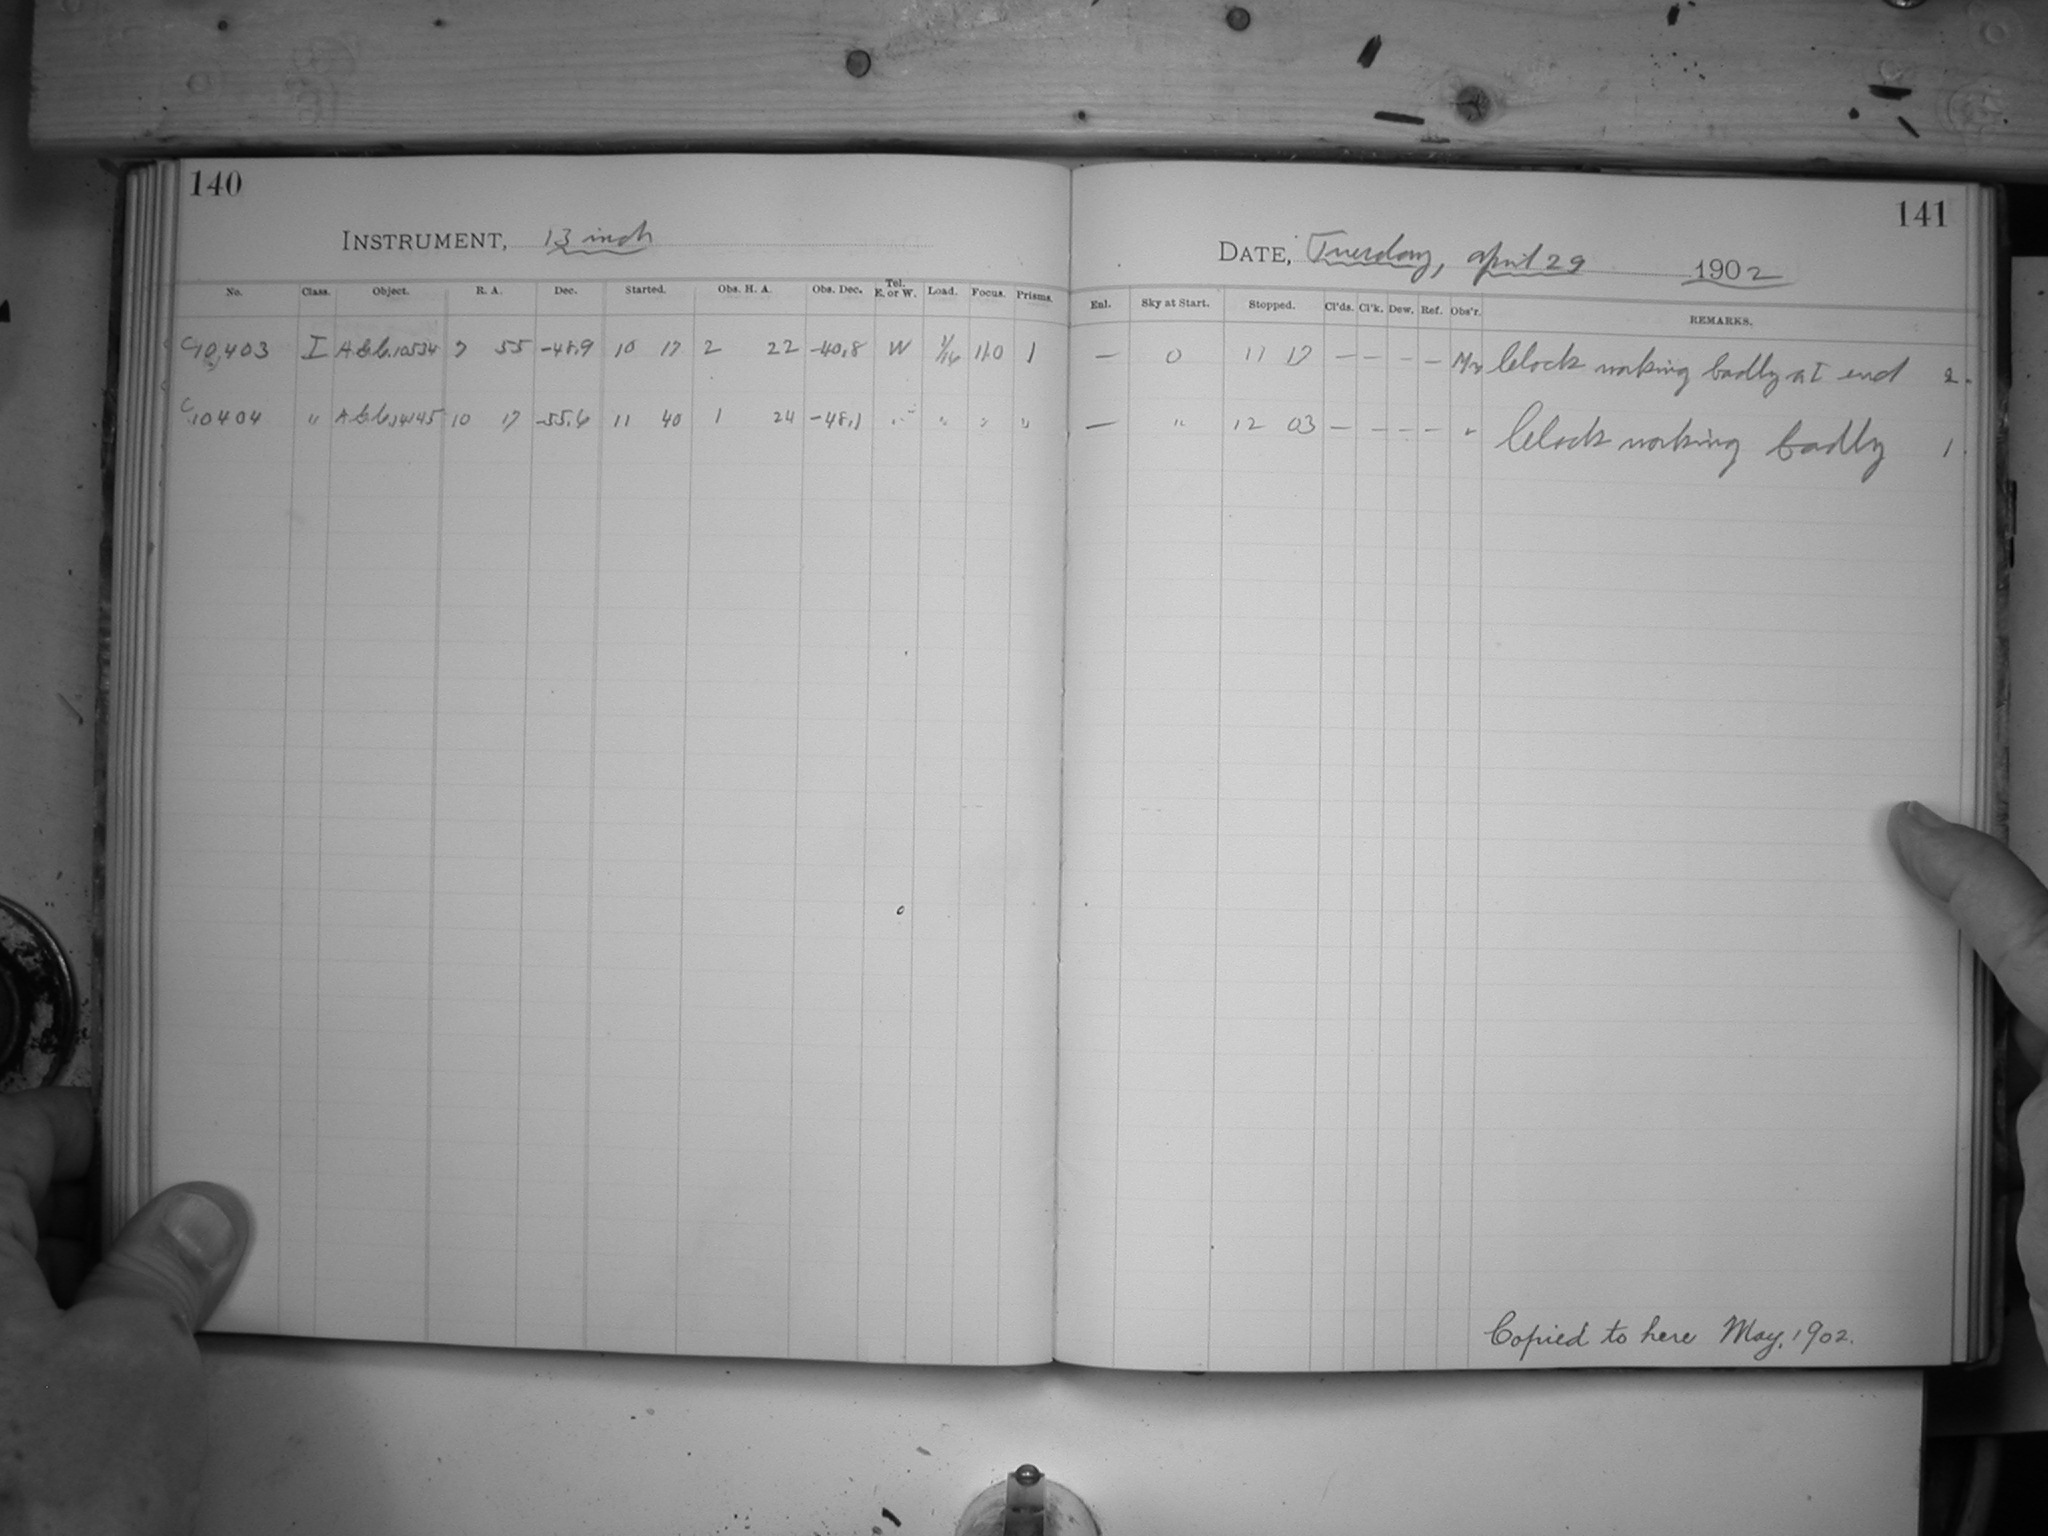 140
INSTRUMENT, 13 inch
No. Class. Object. R. A. Dec. Started. Obs. H. A. Obs. Dec. Tel. E. or W. Load. Focus. Prisms.
C10,403 I A.G.C. 10534 7 55 -48.9 10 17 2 22 -40.8 W 1/16 11.0 1
C10404 " A.G.C. 14145 10 17 -55.6 11 40 1 24 -48.1 " " " "
141
DATE, Tuesday, April 29 1902
Enl. Sky at Start. Stopped. Cl'ds. Cl'k. Dew. Ref. Obs'r. REMARKS.
— 0 11 17 — — — — Clock working badly at end 2.
— " 12 03 — — — — " Clock working badly 1.
Copied to here May, 1902.